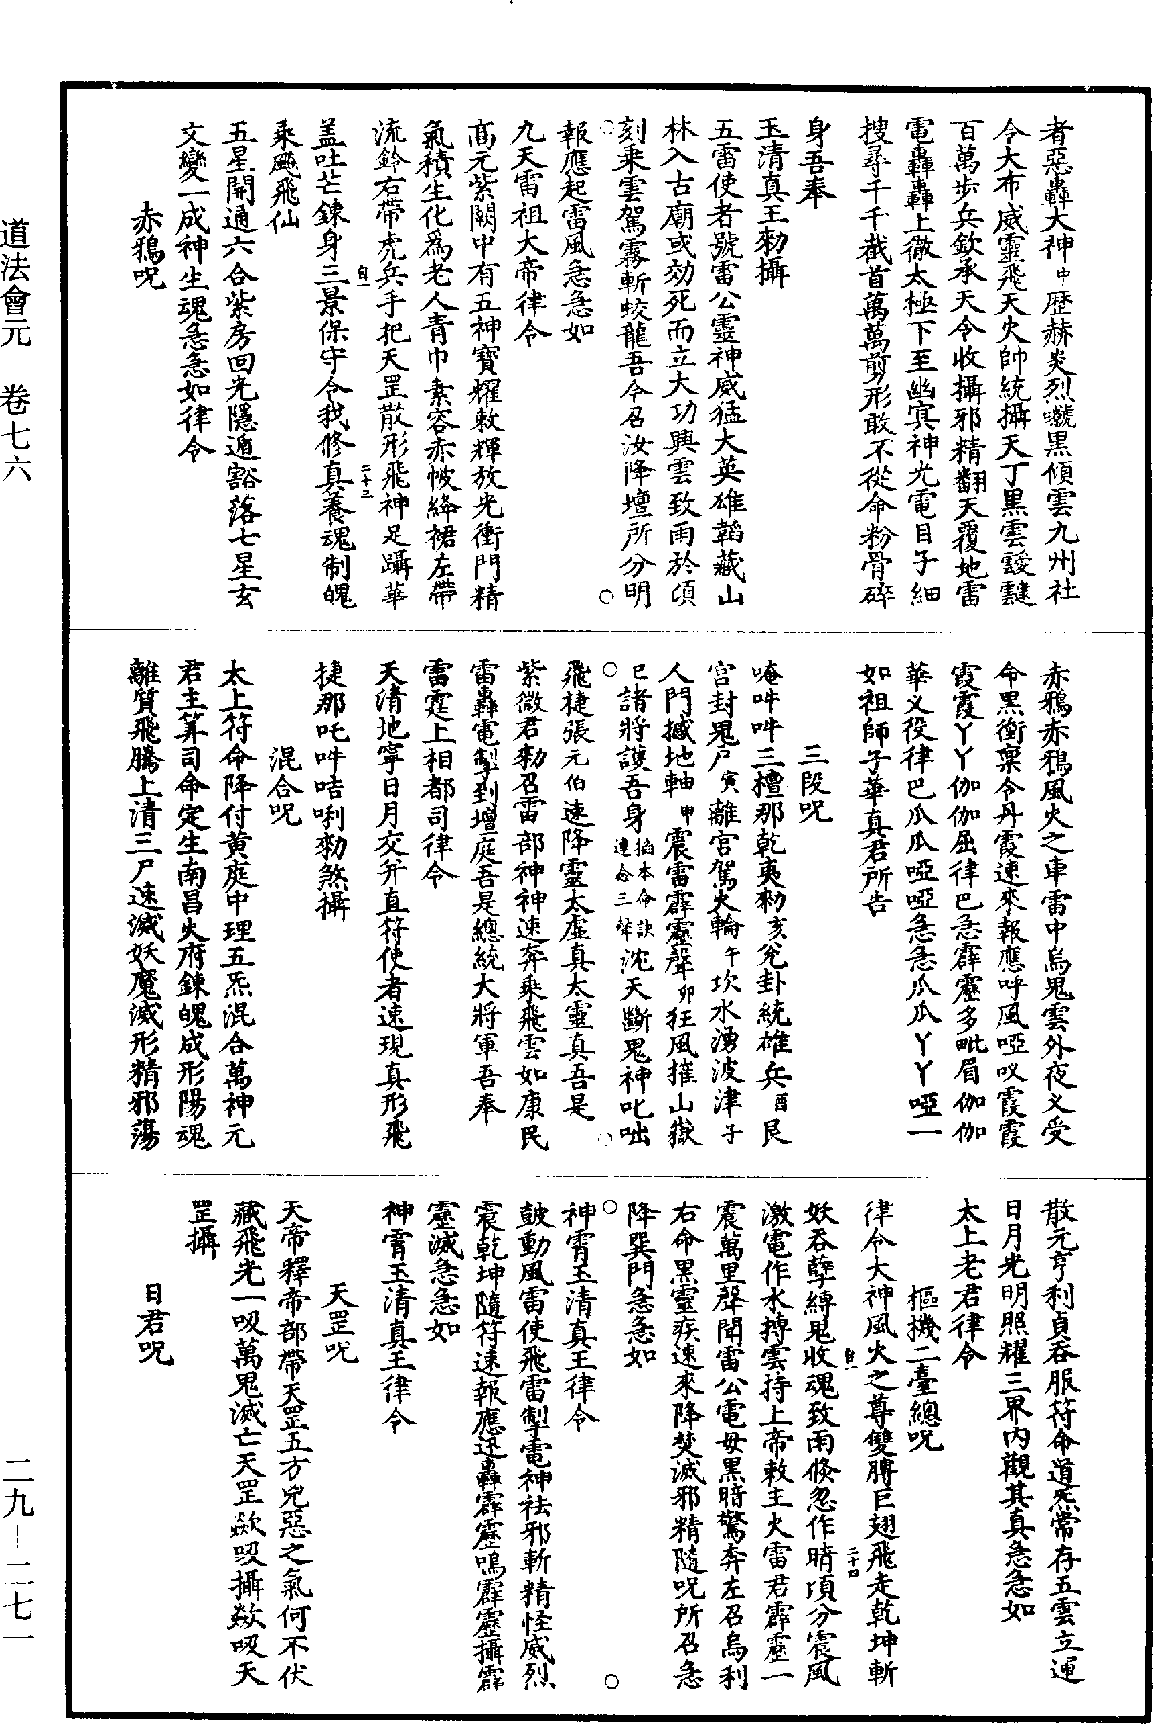 者惡轟大神中歷赫炎烈虩黑傾雲九州社
令大布威靈飛天火帥統攝天丁黑雲靉靆
百萬步兵欽承天令收攝邪精翻天覆地雷
電轟轟上徹太極下至幽冥神光電目子細
搜尋千千截首萬萬剪形敢不從命粉骨碎
身吾奉
玉清真王勑攝
五雷使者號雷公靈神威猛大英雄韜藏山
林入古廟或効死而立大功興雲致雨於頃
刻乘雲駕霧斬蛟龍吾今召汝降壇所分明
報應起雷風急急如
九天雷祖大帝律令
高元紫闕中有五神寶耀敕輝放光衝門精
氣積生化爲老人青巾素容赤帔絳裙左帶
流鈴右帶虎兵手把天罡散形飛神足躡華
蓋吐芒鍊身三景保守令我修真養魂制魄
乘飈飛仙
五星開通六合紫房回光隱遁豁落七星玄
文變一成神生魂急急如律令
赤鴉呪
赤鴉赤鴉風火之車雷中烏鬼雲外夜义受
命黑衝稟令丹霞速來報應呼風啞㕥霞霞
霞霞丫丫伽伽屈律巴急霹靂多毗眉伽伽
華义役律巴瓜瓜啞啞急急瓜瓜丫丫啞一
如祖師子華真君所告
三段呪
唵吽吽三檀那乾夷勑亥兊卦統雄兵酉艮
宮封鬼户寅離宮駕火輪午坎水湧波津子
人門撼地軸申震雷霹靂聲卯狂風摧山嶽
巳諸將護吾身掐本命訣連念三聲沈天斷鬼神叱咄
飛捷張元伯速降靈太虛真太靈真吾是
紫微君勑召雷部神神速奔乘飛雲如康民
雷轟電掣到壇庭吾是總統大將軍吾奉
雷霆上相都司律令
天清地寧日月交并直符使者速現真形飛
捷那吒吽咭唎勑煞攝
混合呪
太上符命降付黄庭中理五炁混合萬神元
君主筭司命定生南昌火府鍊魄成形陽魂
離質飛騰上清三尸速滅妖魔滅形精邪蕩
散元亨利貞吞服符命道炁常存五雲立運
日月光明照耀三界内觀其真急急如
太上老君律令
樞機二臺總呪
律令大神風火之尊雙膊巨翅飛走乾坤斬
妖吞孽縛鬼收魂致雨倐忽作晴頃分震風
激電作水搏雲持上帝敕主火雷君霹靂一
震萬里聲聞雷公電毋黑暗驚奔左召烏利
右命黑靈疾速來降焚滅邪精隨呪所召急
降巽門急急如
神霄玉清真王律令
皷動風雷使飛雷掣電神祛邪斬精怪威烈
震乾坤隨符速報應迅轟霹靂鳴霹靂攝霹
靂滅急急如
神霄玉清真王律令
天罡呪
天帝釋帝部帶天罡五方兇惡之氣何不伏
藏飛光一吸萬鬼滅亡天罡歘吸攝歘吸天
罡攝
日君呪
道法會元 卷七六
二九－二七一